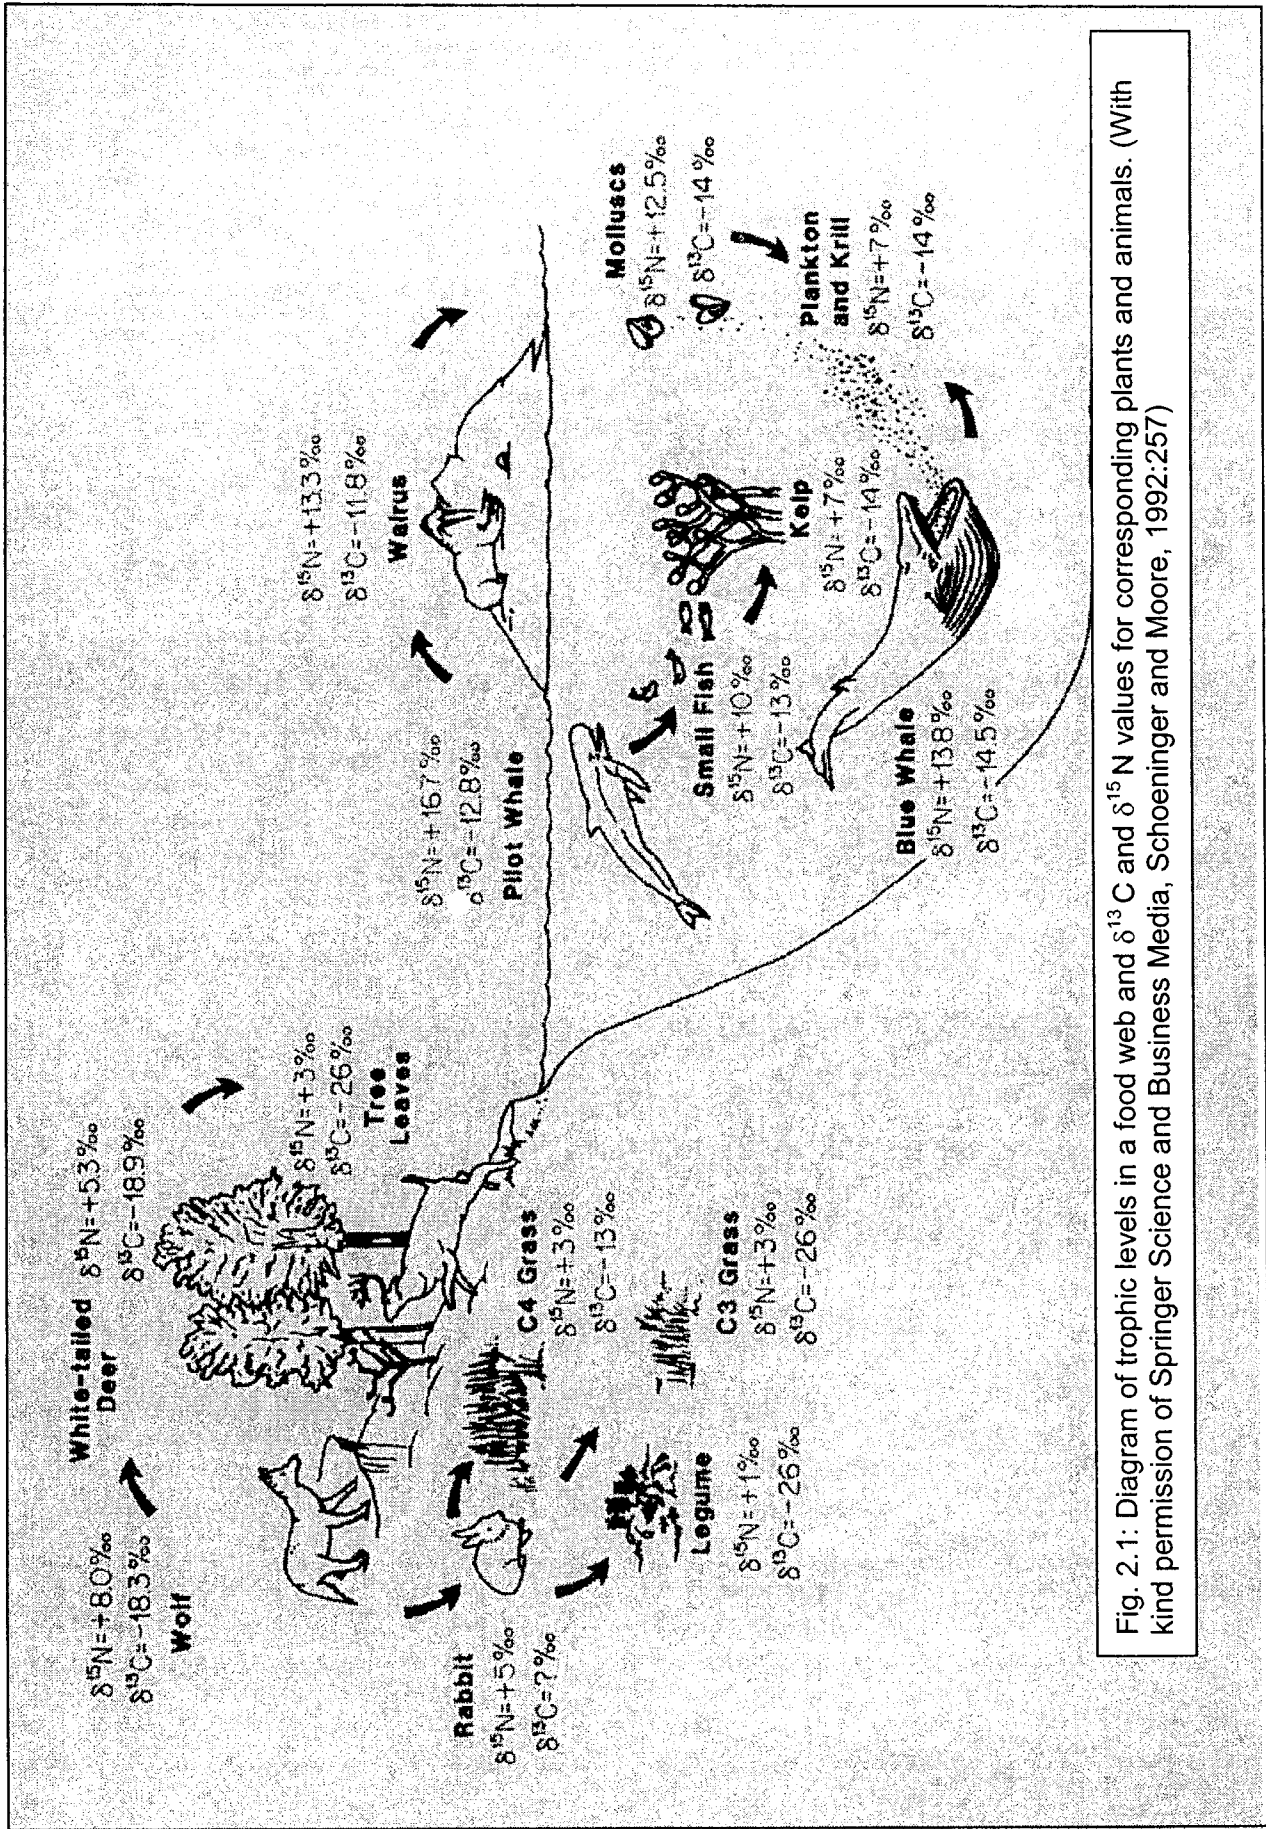 δ¹⁵N=+8.0‰
δ¹³C=-18.3‰
Wolf
White-tailed
Deer
δ¹⁵N=+5.3‰
δ¹³C=-18.9‰
δ¹⁵N=+3‰
δ¹³C=-26‰
Tree
Leaves
Rabbit
δ¹⁵N=+5‰
δ¹³C=?‰
C4 Grass
δ¹⁵N=+3‰
δ¹³C=-13‰
Legume
δ¹⁵N=+1‰
δ¹³C=-26‰
C3 Grass
δ¹⁵N=+3‰
δ¹³C=-26‰
δ¹⁵N=+16.7‰
δ¹³C=-12.8‰
Pilot Whale
δ¹⁵N=+13.3‰
δ¹³C=-11.8‰
Walrus
Small Fish
δ¹⁵N=+10‰
δ¹³C=-13‰
Kelp
δ¹⁵N=+7‰
δ¹³C=-14‰
Molluscs
δ¹⁵N=+12.5‰
δ¹³C=-14‰
Plankton
and Krill
δ¹⁵N=+7‰
δ¹³C=-14‰
Blue Whale
δ¹⁵N=+13.8‰
δ¹³C=-14.5‰
Fig. 2.1: Diagram of trophic levels in a food web and δ¹³ C and δ¹⁵ N values for corresponding plants and animals. (With
kind permission of Springer Science and Business Media, Schoeninger and Moore, 1992:257)